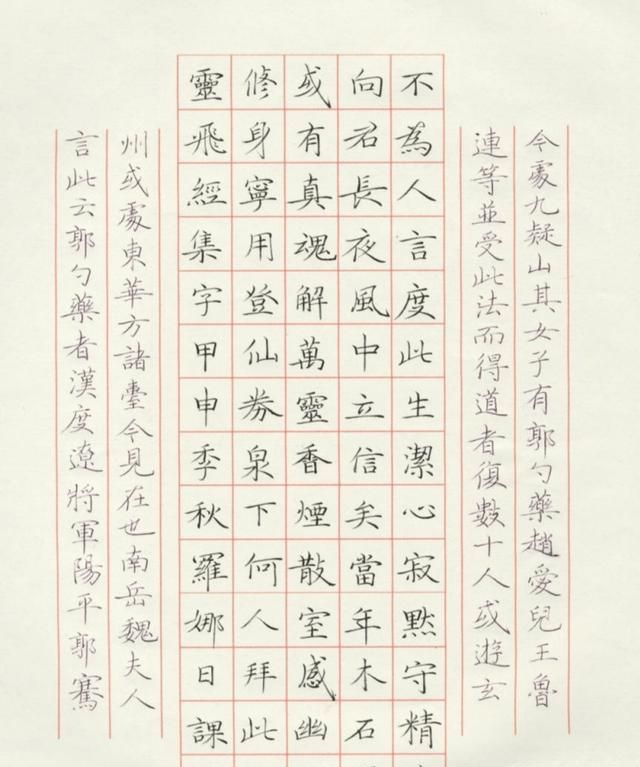 今處九疑山其女子有郭勺藥趙愛兒王魯
連等並受此法而得道者復數十人或遊玄
不為人言度此生潔心寂默守精
向君長夜風中立信矣當年木石
或有真魂解萬靈香煙散室感幽
修身寧用登仙券泉下何人拜此
靈飛經集字甲申季秋羅娜日課
州或處東華方諸臺今見在也南岳魏夫人
言此云郭勺藥者漢度遼將軍陽平郭騫